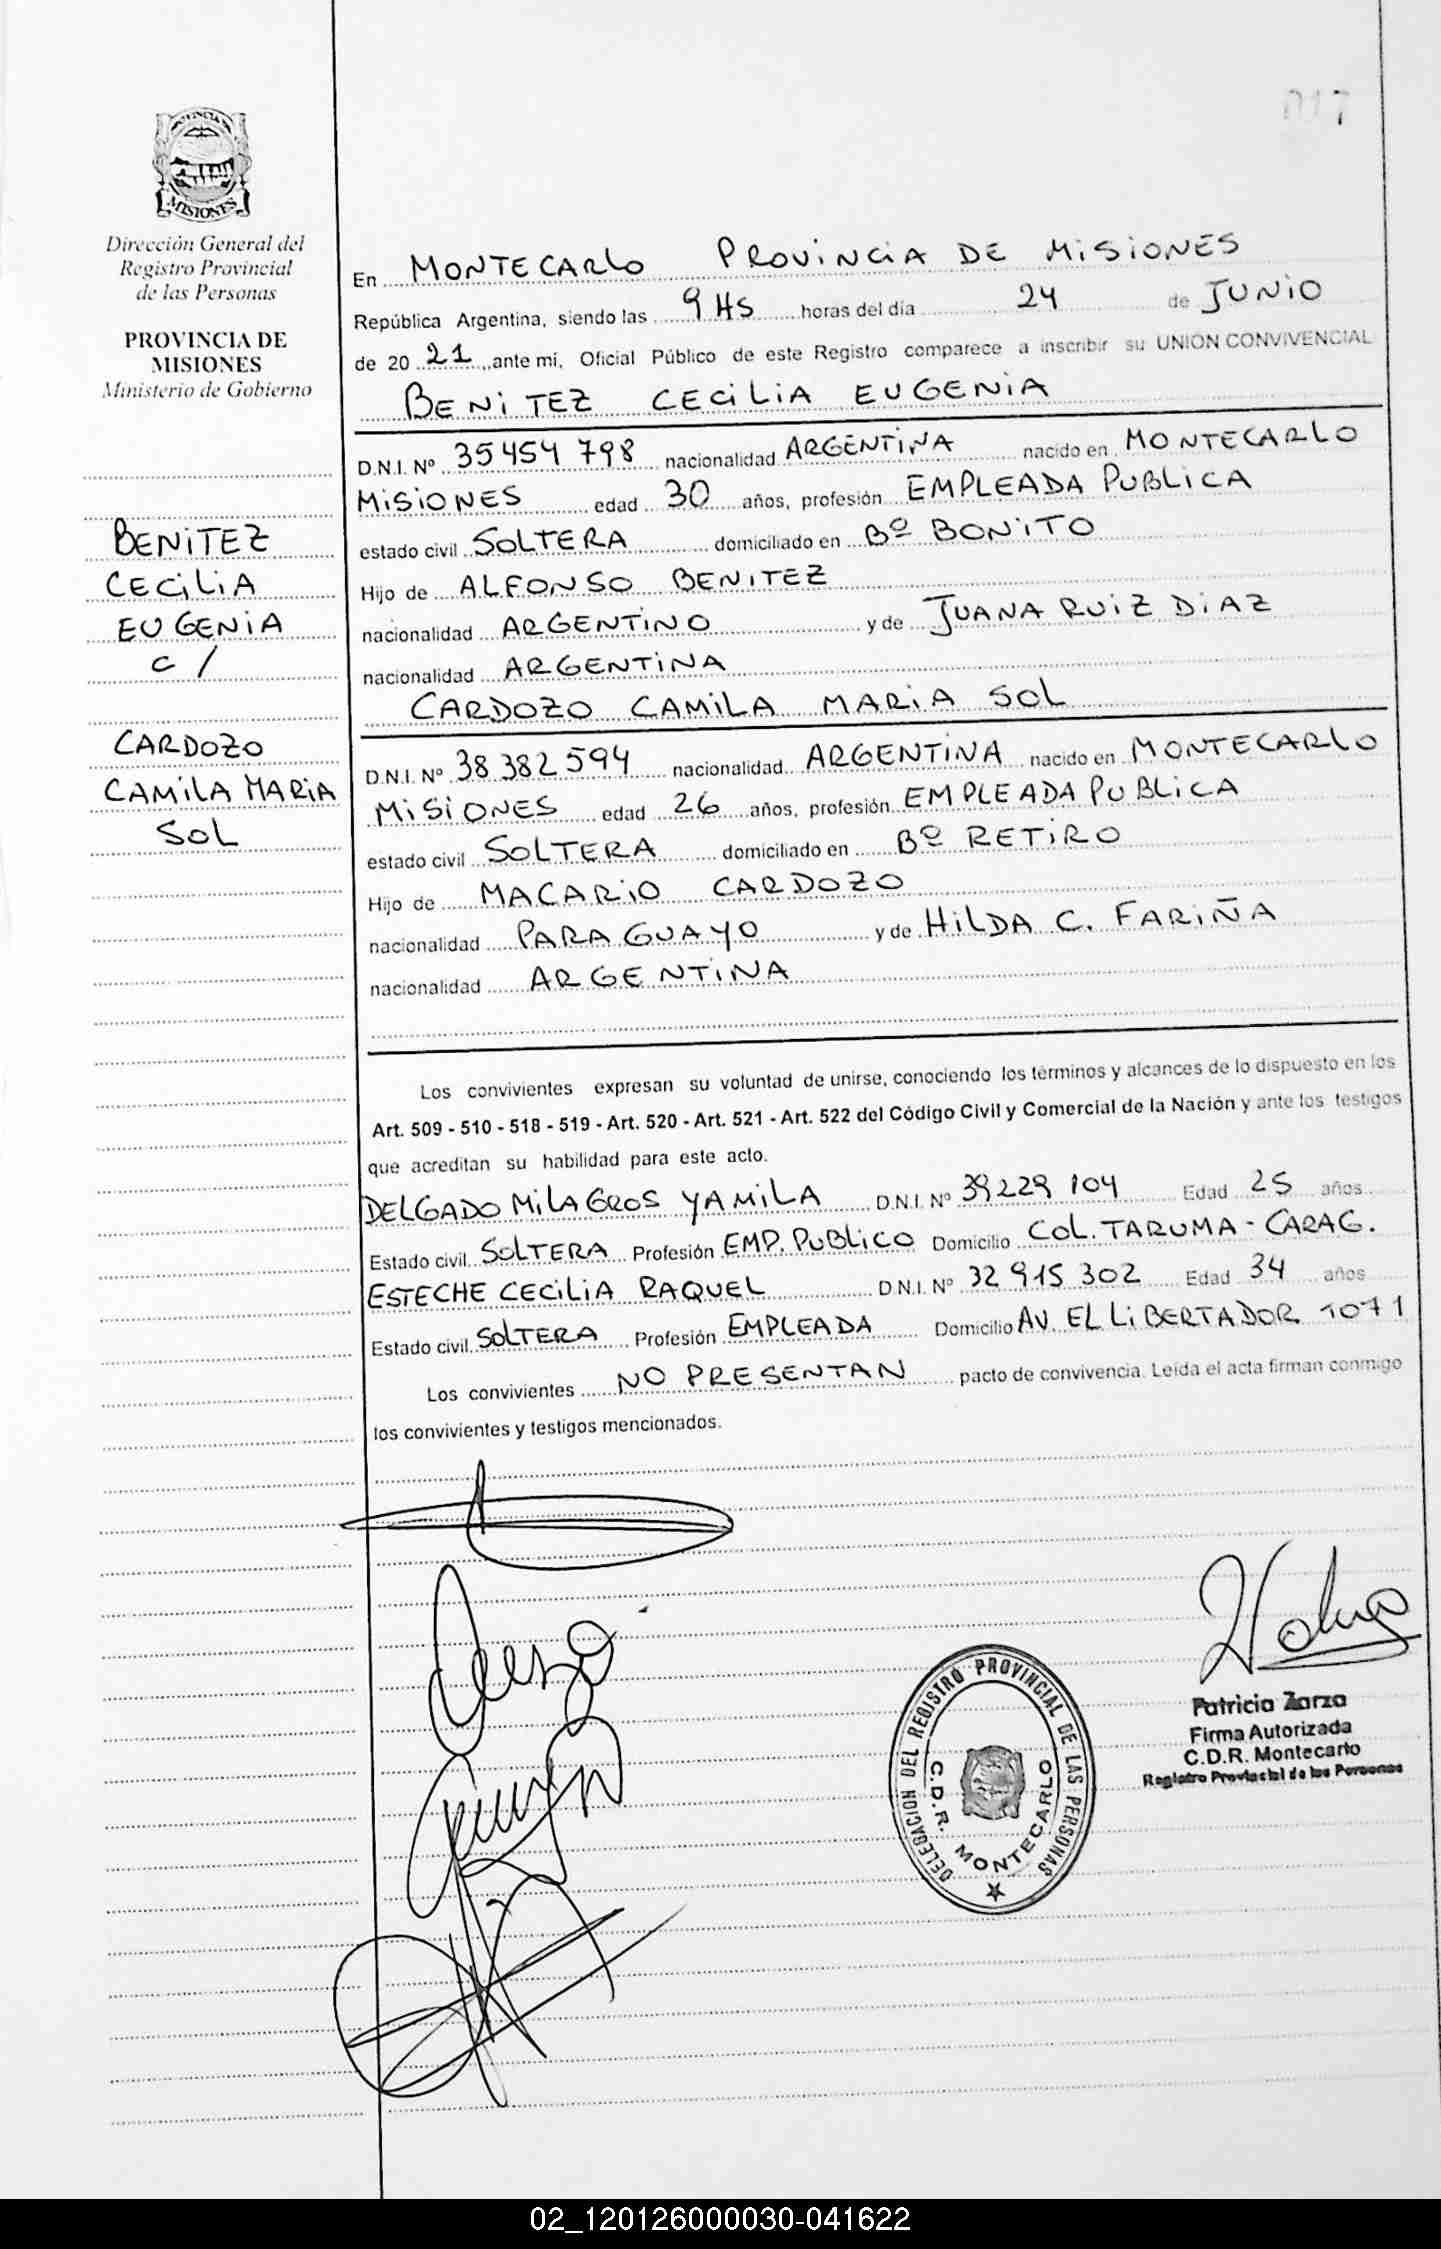 017
PROVINCIA DE
MISIONES
Dirección General del
Registro Provincial
de las Personas
PROVINCIA DE
MISIONES
Ministerio de Gobierno
BENITEZ
CECILIA
EUGENIA
c /
CARDOZO
CAMILA MARIA
SOL
En MONTECARLO PROVINCIA DE MISIONES
República Argentina, siendo las 9 HS horas del día 24 de JUNIO
de 20 21 ante mí, Oficial Público de este Registro comparece a inscribir su UNION CONVIVENCIAL
BENITEZ CECILIA EUGENIA
D.N.I. Nº 35454798 nacionalidad ARGENTINA nacido en MONTECARLO
MISIONES edad 30 años, profesión EMPLEADA PUBLICA
estado civil SOLTERA domiciliado en Bº BONITO
Hijo de ALFONSO BENITEZ
nacionalidad ARGENTINO y de JUANA RUIZ DIAZ
nacionalidad ARGENTINA
CARDOZO CAMILA MARIA SOL
D.N.I. Nº 38382594 nacionalidad ARGENTINA nacido en MONTECARLO
MISIONES edad 26 años, profesión EMPLEADA PUBLICA
estado civil SOLTERA domiciliado en Bº RETIRO
Hijo de MACARIO CARDOZO
nacionalidad PARAGUAYO y de HILDA C. FARIÑA
nacionalidad ARGENTINA
Los convivientes expresan su voluntad de unirse, conociendo los términos y alcances de lo dispuesto en los
Art. 509 - 510 - 518 - 519 - Art. 520 - Art. 521 - Art. 522 del Código Civil y Comercial de la Nación y ante los testigos
que acreditan su habilidad para este acto.
DELGADO MILAGROS YAMILA D.N.I. Nº 39229104 Edad 25 años
Estado civil SOLTERA Profesión EMP. PUBLICO Domicilio COL. TARUMA - CARAG.
ESTECHE CECILIA RAQUEL D.N.I. Nº 32915302 Edad 34 años
Estado civil SOLTERA Profesión EMPLEADA Domicilio AV. EL LIBERTADOR 1071
Los convivientes NO PRESENTAN pacto de convivencia. Leída el acta firman conmigo
los convivientes y testigos mencionados.
DELEGACION DEL REGISTRO PROVINCIAL DE LAS PERSONAS
C.D.R. MONTECARLO
Patricia Zarza
Firma Autorizada
C.D.R. Montecarlo
Registro Provincial de las Personas
02_120126000030-041622